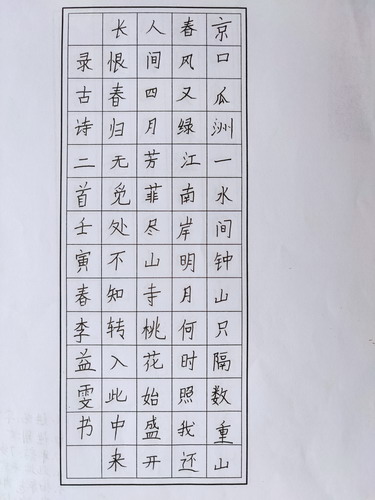 京口瓜洲一水间钟山只隔数重山
春风又绿江南岸明月何时照我还
人间四月芳菲尽山寺桃花始盛开
长恨春归无觅处不知转入此中来
录古诗二首壬寅春李益雯书